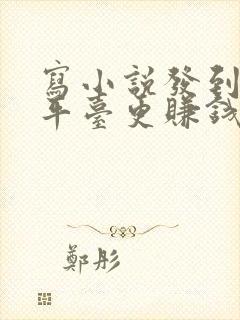 寫小說發到
平臺更賺錢
鄭彤